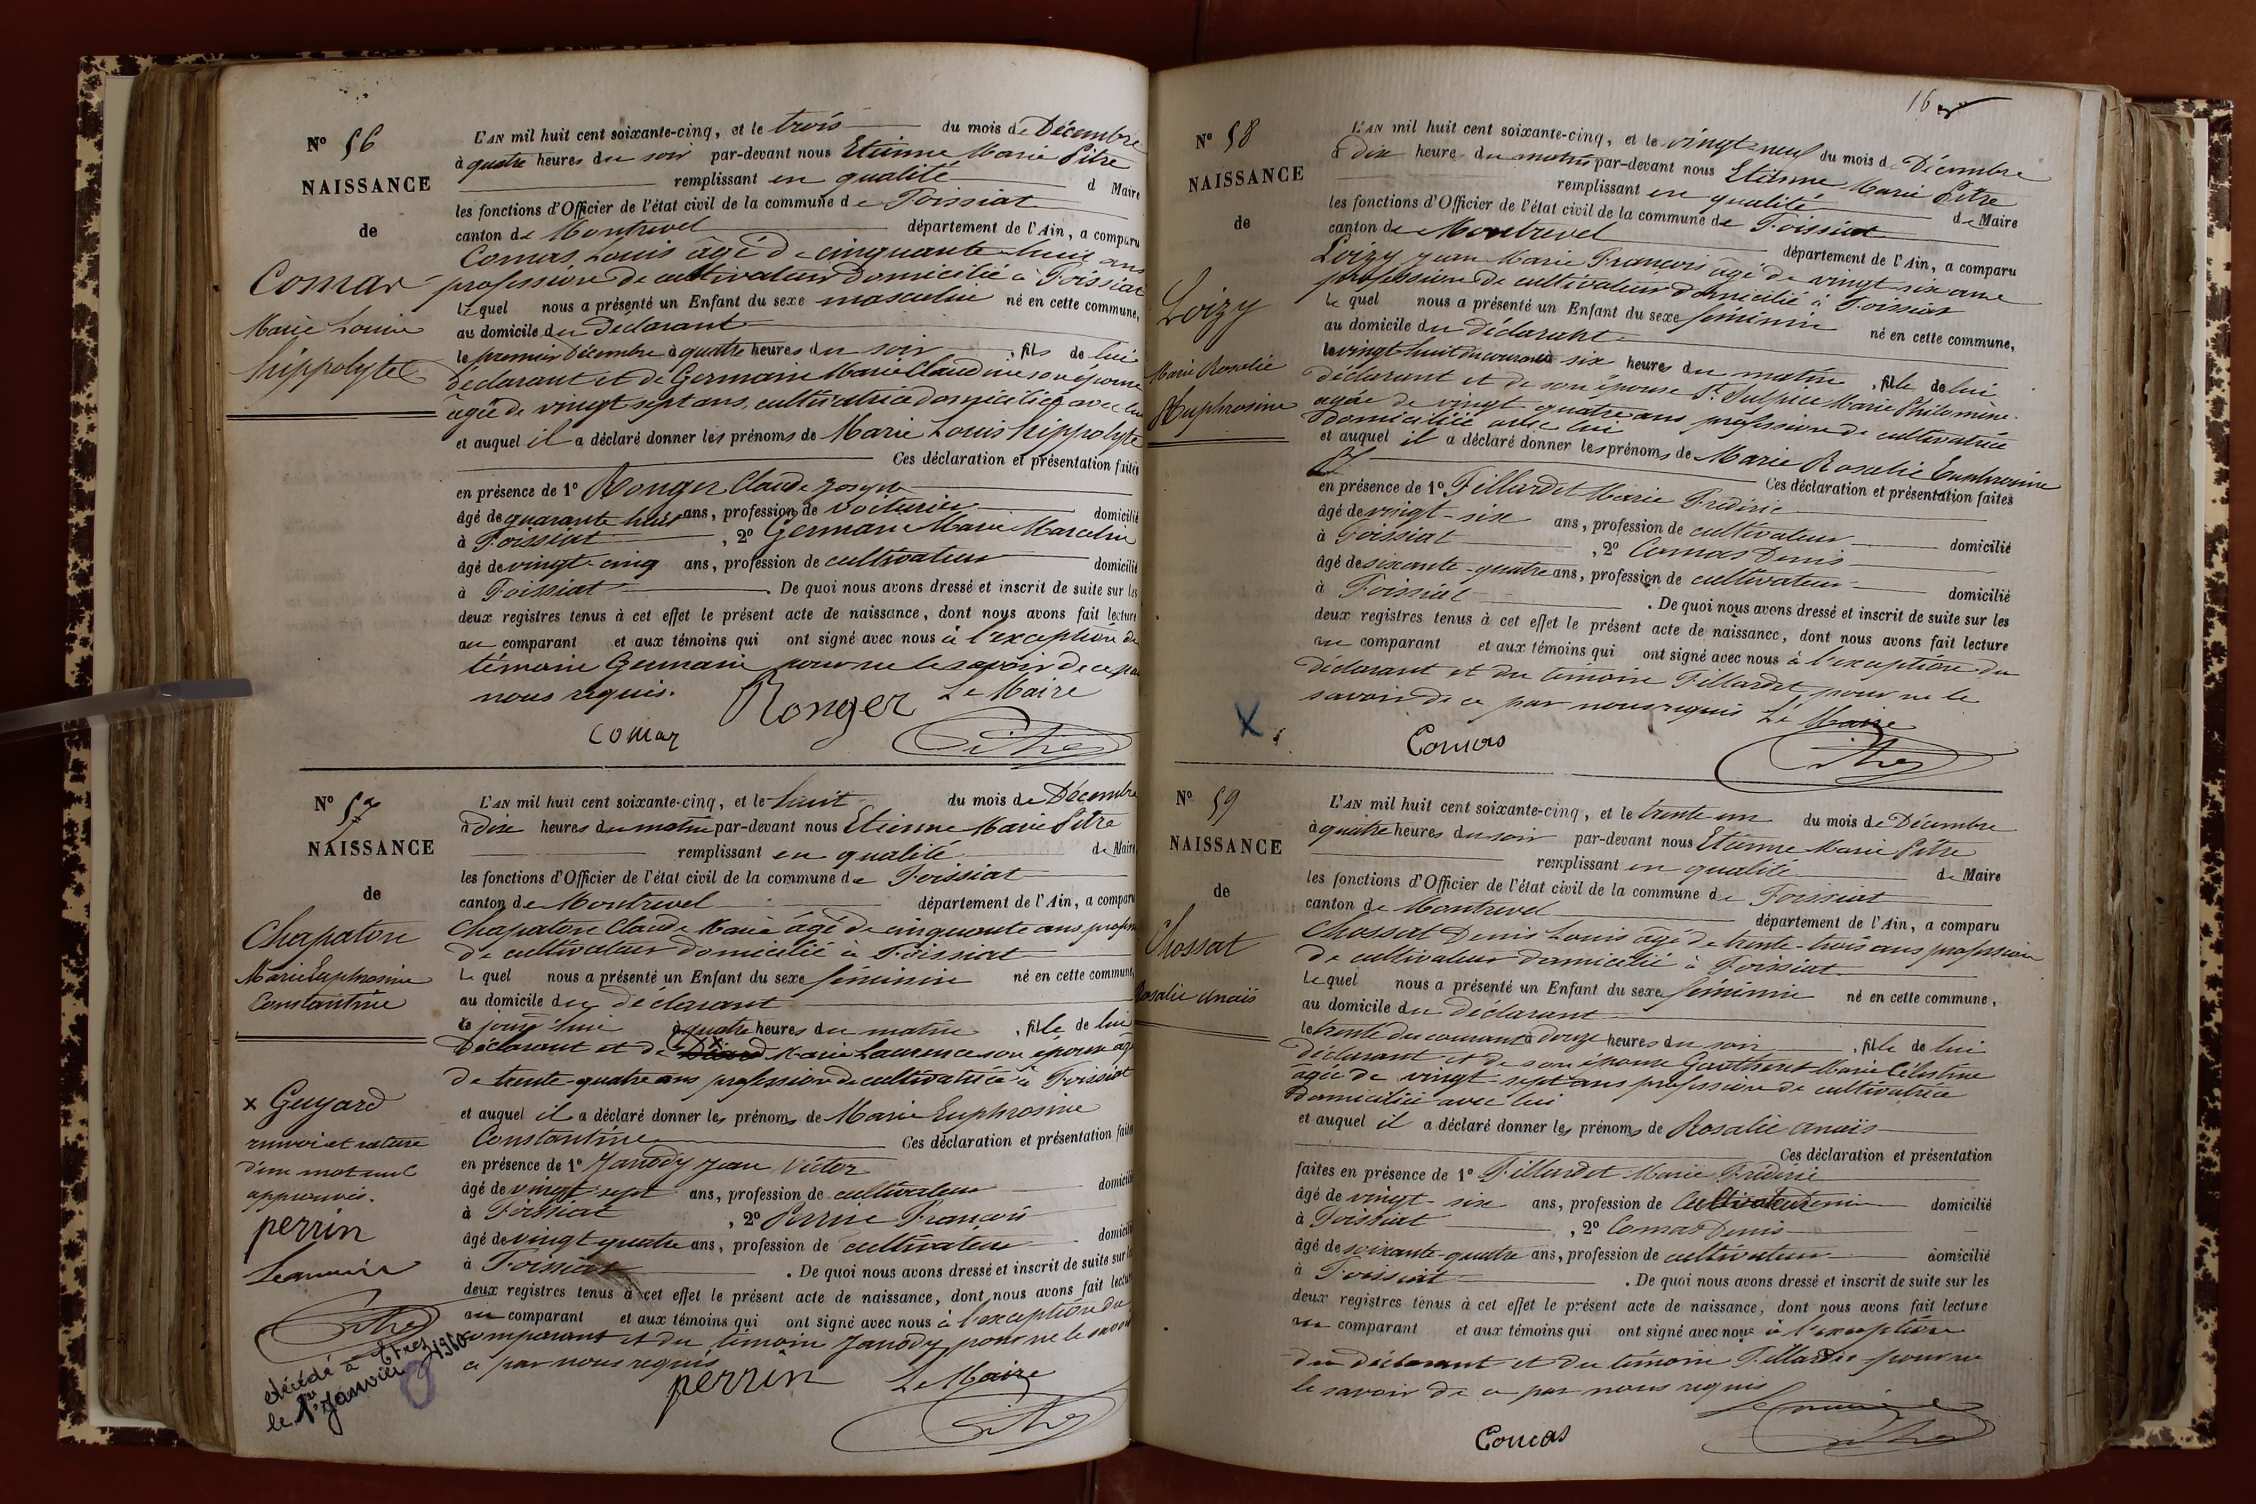 Nº 56
NAISSANCE
de
Comas
Marie Louis
hippolyte
L'AN mil huit cent soixante-cinq, et le trois du mois de Décembre
à quatre heures du soir par-devant nous Etienne Marie Pitre
remplissant en qualité d Maire
les fonctions d'Officier de l'état civil de la commune de Foissiat
canton de Montrevel département de l'Ain, a comparu
Comas Louis âgé de cinquante huit ans
profession de cultivateur domicilié à Foissiat
Le quel nous a présenté un Enfant du sexe masculin né en cette commune,
au domicile du déclarant
le premier Décembre à quatre heures du soir, fils de lui
déclarant et de Germain Marie Claudine son épouse
âgée de vingt sept ans, cultivatrice domiciliée avec lui
et auquel il a déclaré donner les prénoms de Marie Louis hippolyte
Ces déclaration et présentation faites
en présence de 1º Ronger Claude Joseph
âgé de quarante huit ans, profession de voiturier domicilié
à Foissiat, 2º Germain Marie Marcelin
âgé de vingt-cinq ans, profession de cultivateur domicilié
à Foissiat. De quoi nous avons dressé et inscrit de suite sur les
deux registres tenus à cet effet le présent acte de naissance, dont nous avons fait lecture
au comparant et aux témoins qui ont signé avec nous à l'exception du
témoin Germain pour ne le savoir de ce par
nous requis. Le Maire
Comas Ronger Pitre
Nº 57
NAISSANCE
de
Chapaton
Marie Euphrosine
Constantine
x Guyard
renvoi et rature
d'un mot nul
approuvés.
perrin
Le maire
Pitre
décédé à Etrez
le 1er Janvier 1960
L'AN mil huit cent soixante-cinq, et le huit du mois de Décembre
à dix heures du matin par-devant nous Etienne Marie Pitre
remplissant en qualité de Maire
les fonctions d'Officier de l'état civil de la commune de Foissiat
canton de Montrevel département de l'Ain, a comparu
Chapaton Claude Marie âgé de cinquante ans profession
de cultivateur domicilié à Foissiat
Le quel nous a présenté un Enfant du sexe féminin né en cette commune,
au domicile du déclarant
le jourd'hui à quatre heures du matin, fille de lui
déclarant et de x Marie Laurence son épouse âgée
de trente-quatre ans profession de cultivatrice à Foissiat
et auquel il a déclaré donner les prénoms de Marie Euphrosine
Constantine Ces déclaration et présentation faites
en présence de 1º Janody Jean Victor
âgé de vingt-sept ans, profession de cultivateur domicilié
à Foissiat, 2º Perrin François
âgé de vingt quatre ans, profession de cultivateur domicilié
à Foissiat. De quoi nous avons dressé et inscrit de suite sur les
deux registres tenus à cet effet le présent acte de naissance, dont nous avons fait lecture
au comparant et aux témoins qui ont signé avec nous à l'exception du
comparant et du témoin Janody pour ne le savoir
ce par nous requis
perrin Le Maire
Pitre
16
Nº 58
NAISSANCE
de
Loizy
Marie Rosalie
Euphrosine
L'AN mil huit cent soixante-cinq, et le vingt-neuf du mois de Décembre
à dix heures du matin par-devant nous Etienne Marie Pitre
remplissant en qualité de Maire
les fonctions d'Officier de l'état civil de la commune de Foissiat
canton de Montrevel département de l'Ain, a comparu
Loizy Jean Marie François âgé de vingt six ans
profession de cultivateur domicilié à Foissiat
le quel nous a présenté un Enfant du sexe féminin né en cette commune,
au domicile du déclarant
le vingt-huit du courant à six heures du matin, fille de lui
déclarant et de son épouse St Sulpice Marie Philomène
agée de vingt quatre ans profession de cultivatrice
domiciliée avec lui
et auquel il a déclaré donner les prénoms de Marie Rosalie Euphrosine
Ces déclaration et présentation faites
en présence de 1º Fillardet Marie Frédéric
âgé de vingt-six ans, profession de cultivateur domicilié
à Foissiat, 2º Comas Denis
âgé de soixante-quatre ans, profession de cultivateur domicilié
à Foissiat. De quoi nous avons dressé et inscrit de suite sur les
deux registres tenus à cet effet le présent acte de naissance, dont nous avons fait lecture
au comparant et aux témoins qui ont signé avec nous à l'exception du
déclarant et du témoin Fillardet pour ne le
savoir de ce par nous requis Le Maire
X Comas Pitre
Nº 59
NAISSANCE
de
Chossat
Rosalie Anaïs
L'AN mil huit cent soixante-cinq, et le trente-un du mois de Décembre
à quatre heures du soir par-devant nous Etienne Marie Pitre
remplissant en qualité de Maire
les fonctions d'Officier de l'état civil de la commune de Foissiat
canton de Montrevel département de l'Ain, a comparu
Chossat Denis Louis âgé de trente-trois ans profession
de cultivateur domicilié à Foissiat
Le quel nous a présenté un Enfant du sexe féminin né en cette commune,
au domicile du déclarant
le trente du courant à onze heures du soir, fille de lui
déclarant et de son épouse Gautheret Marie Célestine
âgée de vingt-sept ans profession de cultivatrice
domiciliée avec lui
et auquel il a déclaré donner les prénoms de Rosalie anaïs
Ces déclaration et présentation
faites en présence de 1º Fillardet Marie Frédéric
âgé de vingt-six ans, profession de cultivateur domicilié
à Foissiat, 2º Comas Denis
âgé de soixante-quatre ans, profession de cultivateur domicilié
à Foissiat. De quoi nous avons dressé et inscrit de suite sur les
deux registres tenus à cet effet le présent acte de naissance, dont nous avons fait lecture
au comparant et aux témoins qui ont signé avec nous à l'exception
du déclarant et du témoin Fillardet pour ne
le savoir de ce par nous requis
Le maire
Comas Pitre